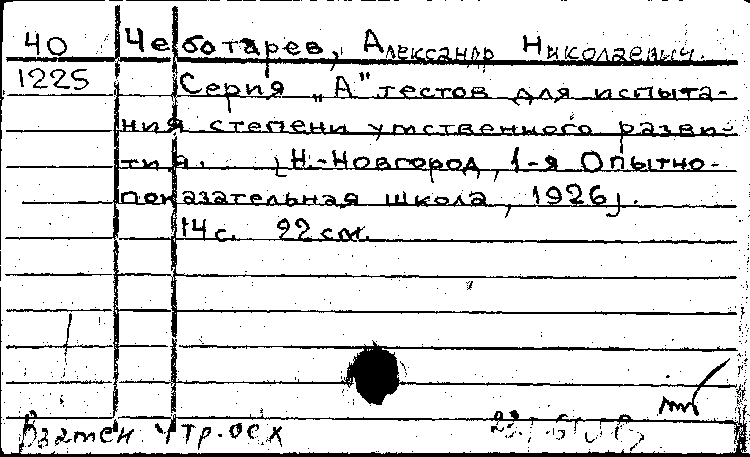 40 Чеботарев, Александр Николаевич.
1225 Серия „А" тестов для испыта-
ния степени умственного разви-
тия. [Н.-Новгород, 1-я Опытно-
показательная школа, 1926].
14 с. 22 см.
Взамен утр.